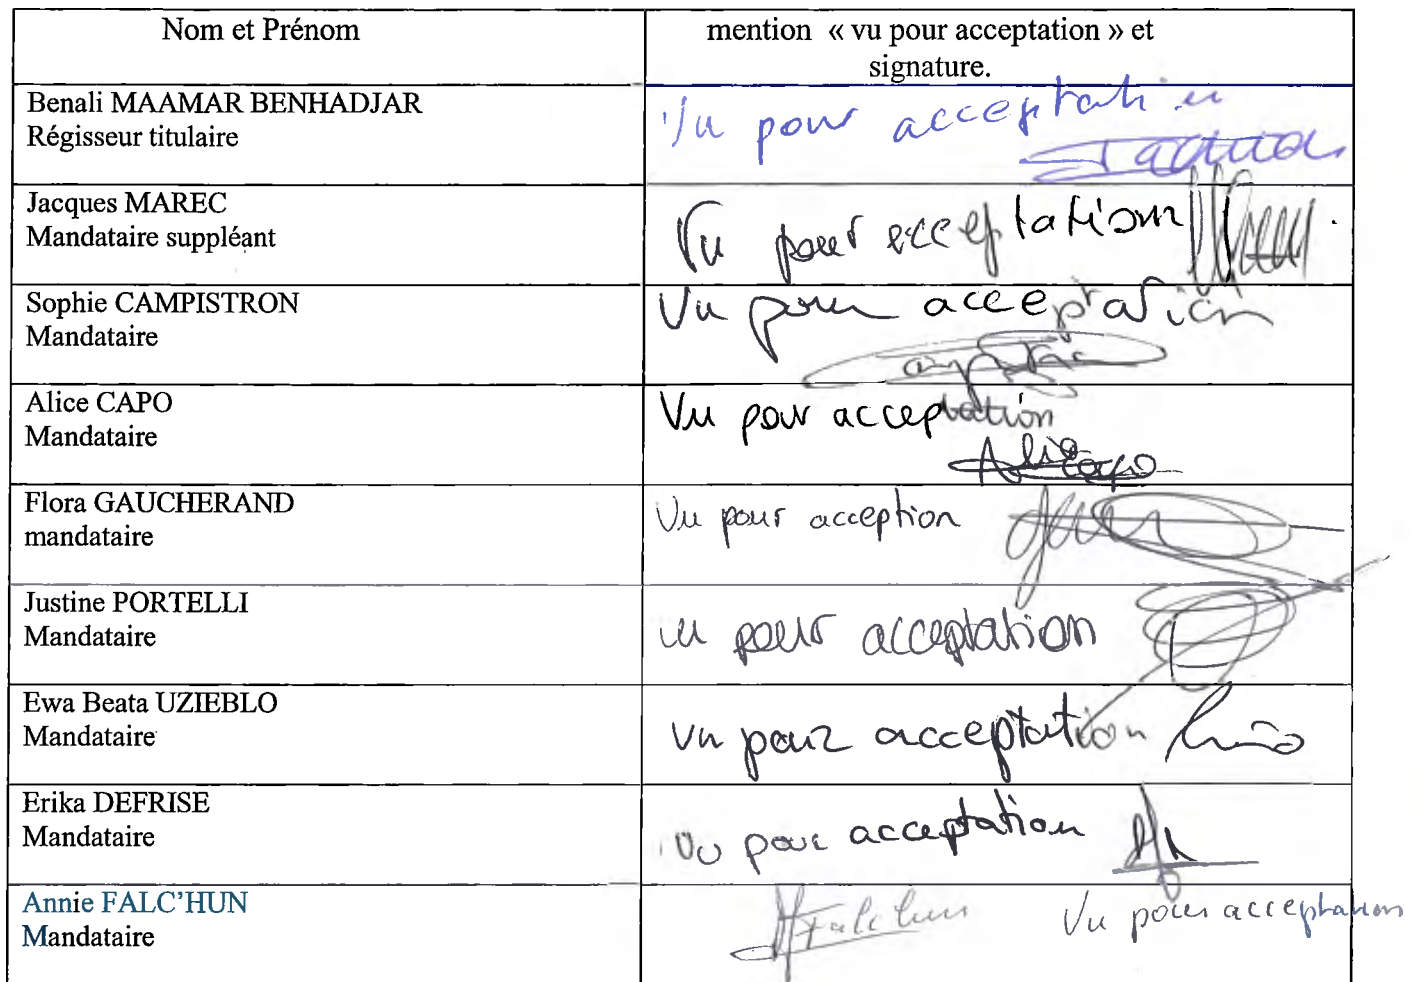 Nom et Prénom
mention « vu pour acceptation » et
signature.
Benali MAAMAR BENHADJAR
Régisseur titulaire
Vu pour acceptation
Jacques MAREC
Mandataire suppléant
Vu pour acceptation
Sophie CAMPISTRON
Mandataire
Vu pour acceptation
Alice CAPO
Mandataire
Vu pour acceptation
Alice Capo
Flora GAUCHERAND
mandataire
Vu pour acception
Justine PORTELLI
Mandataire
vu pour acceptation
Ewa Beata UZIEBLO
Mandataire
Vu pour acceptation
Erika DEFRISE
Mandataire
Vu pour acceptation
Annie FALC'HUN
Mandataire
AFalchun Vu pour acceptation